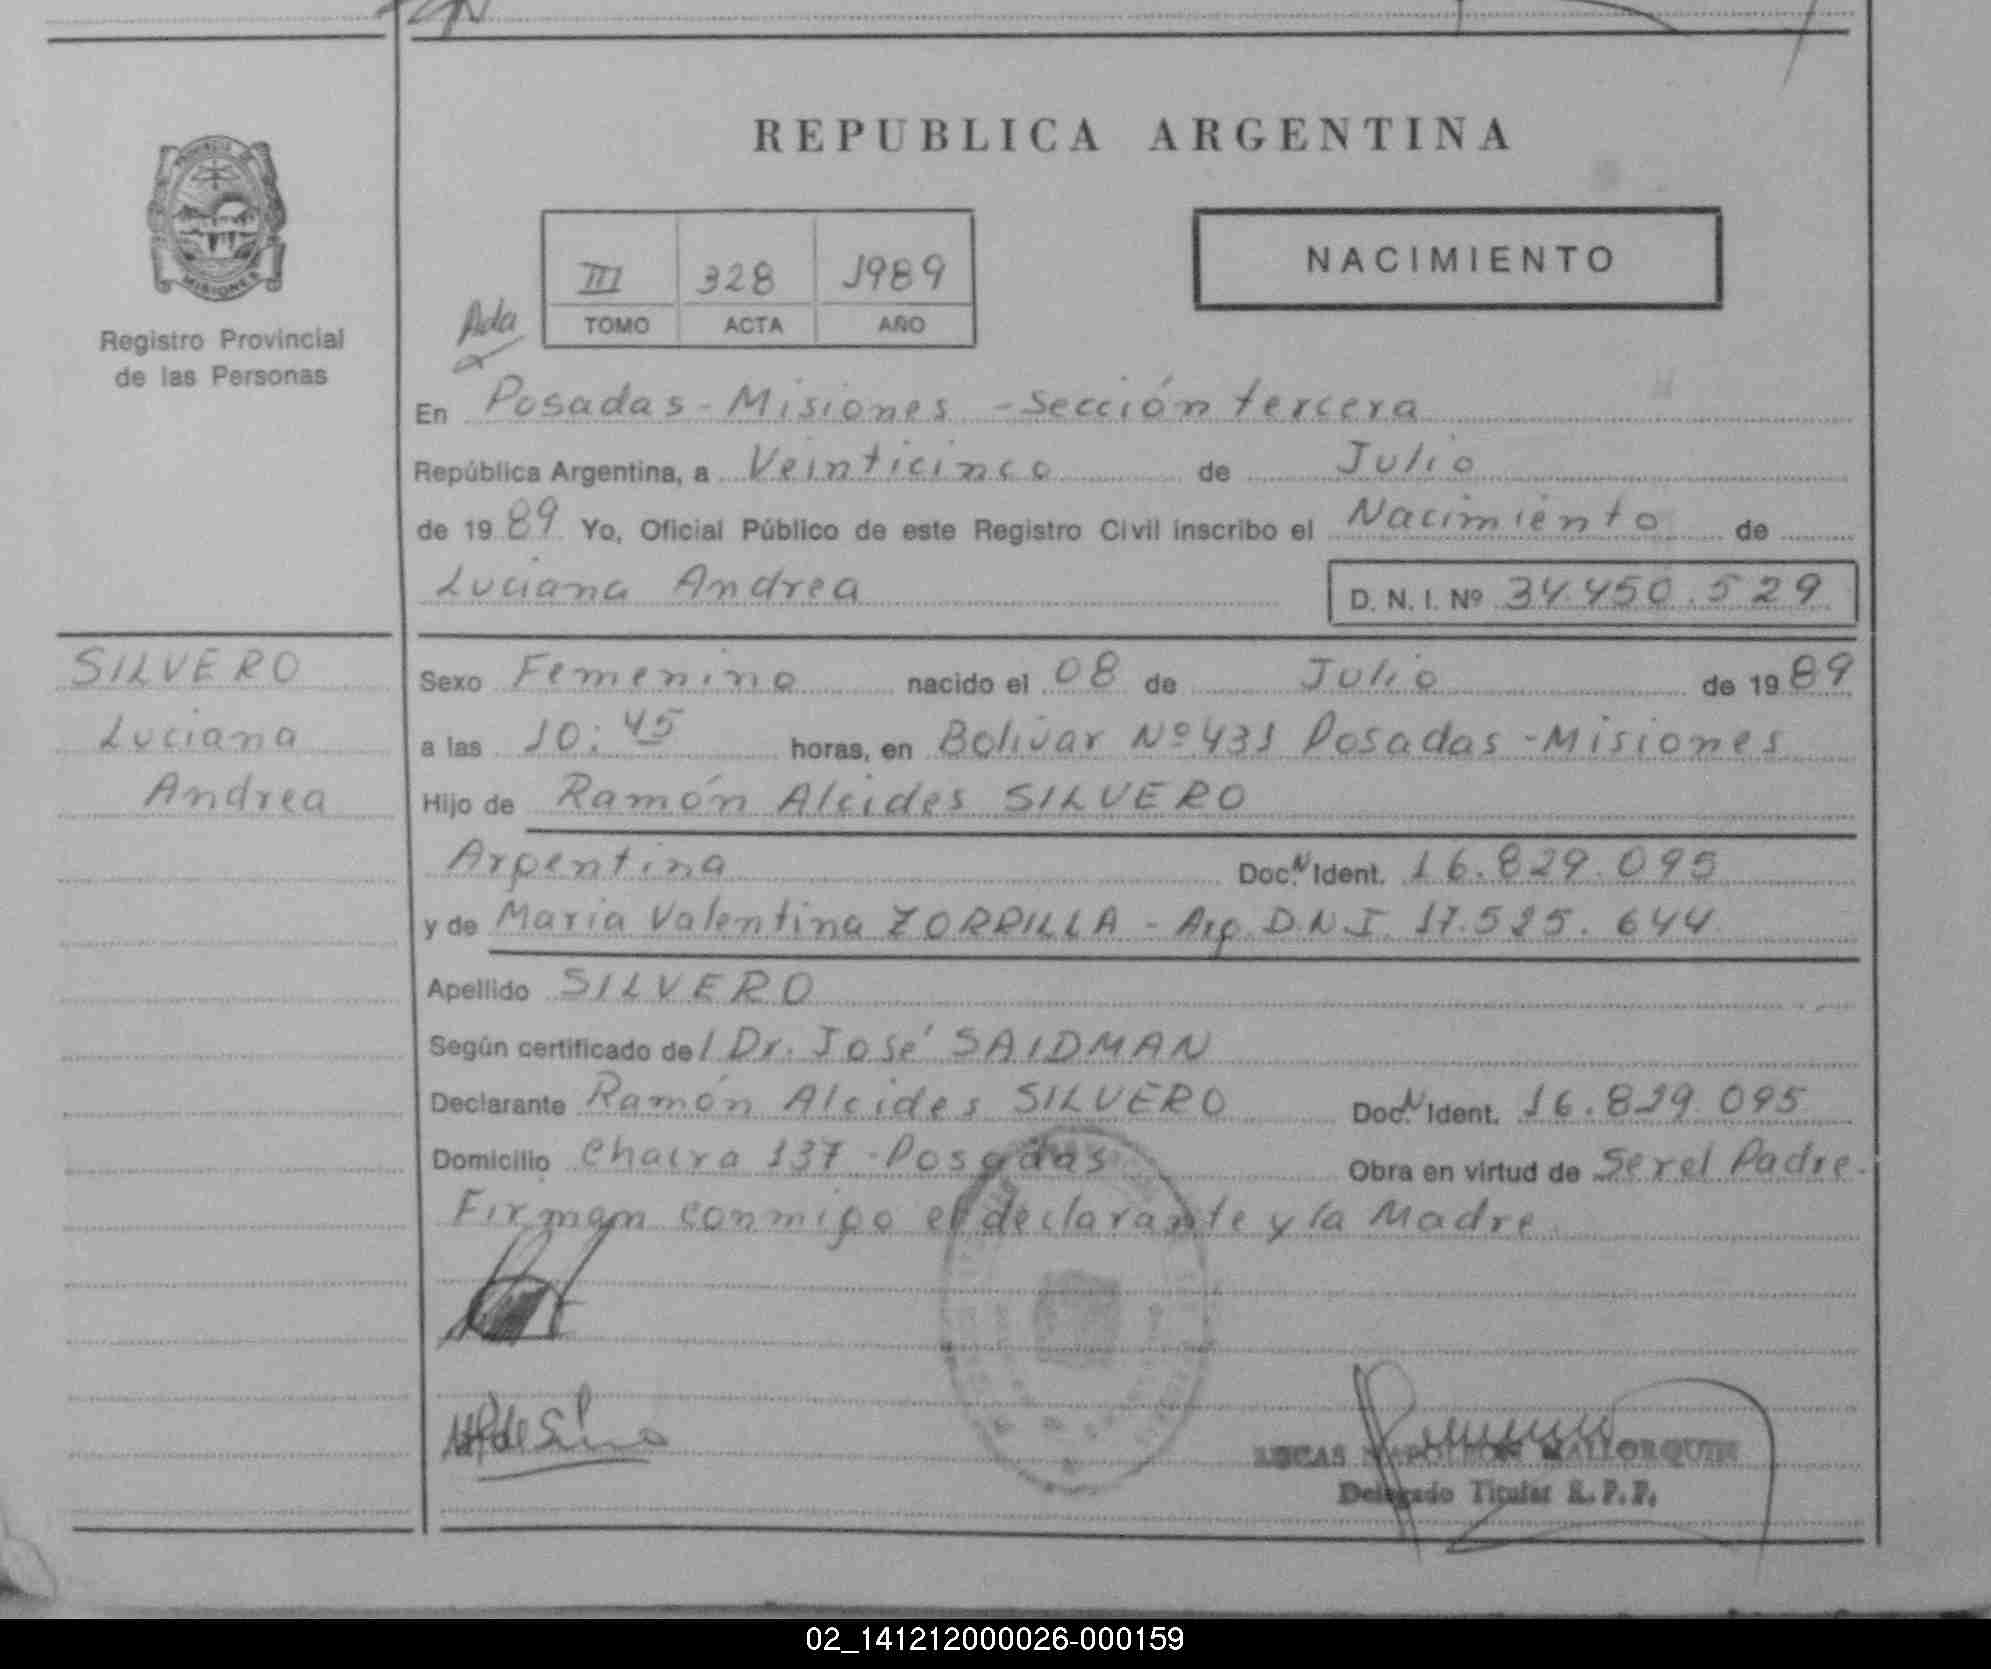 REPUBLICA ARGENTINA
PROVINCIA DE
MISIONES
Registro Provincial
de las Personas
III 328 1989
TOMO ACTA AÑO
NACIMIENTO
En Posadas - Misiones - Sección tercera
República Argentina, a Veinticinco de Julio
de 1989 Yo, Oficial Público de este Registro Civil inscribo el Nacimiento de
Luciana Andrea D. N. I. Nº 34.450.529
SILVERO
Luciana
Andrea
Sexo Femenino nacido el 08 de Julio de 1989
a las 10:45 horas, en Bolivar Nº 431 Posadas - Misiones
Hijo de Ramón Alcides SILVERO
Argentina Doc. N Ident. 16.829.095
y de Maria Valentina ZORRILLA - Arg. D.N.I. 17.525.644
Apellido SILVERO
Según certificado del Dr. José SAIDMAN
Declarante Ramón Alcides SILVERO Doc. N Ident. 16.829.095
Domicilio Chacra 137 - Posadas Obra en virtud de Ser el Padre.
Firman conmigo el declarante y la Madre.
LUCAS NAPOLEON MALLORQUIN
Delegado Titular R. P. P.
02_141212000026-000159